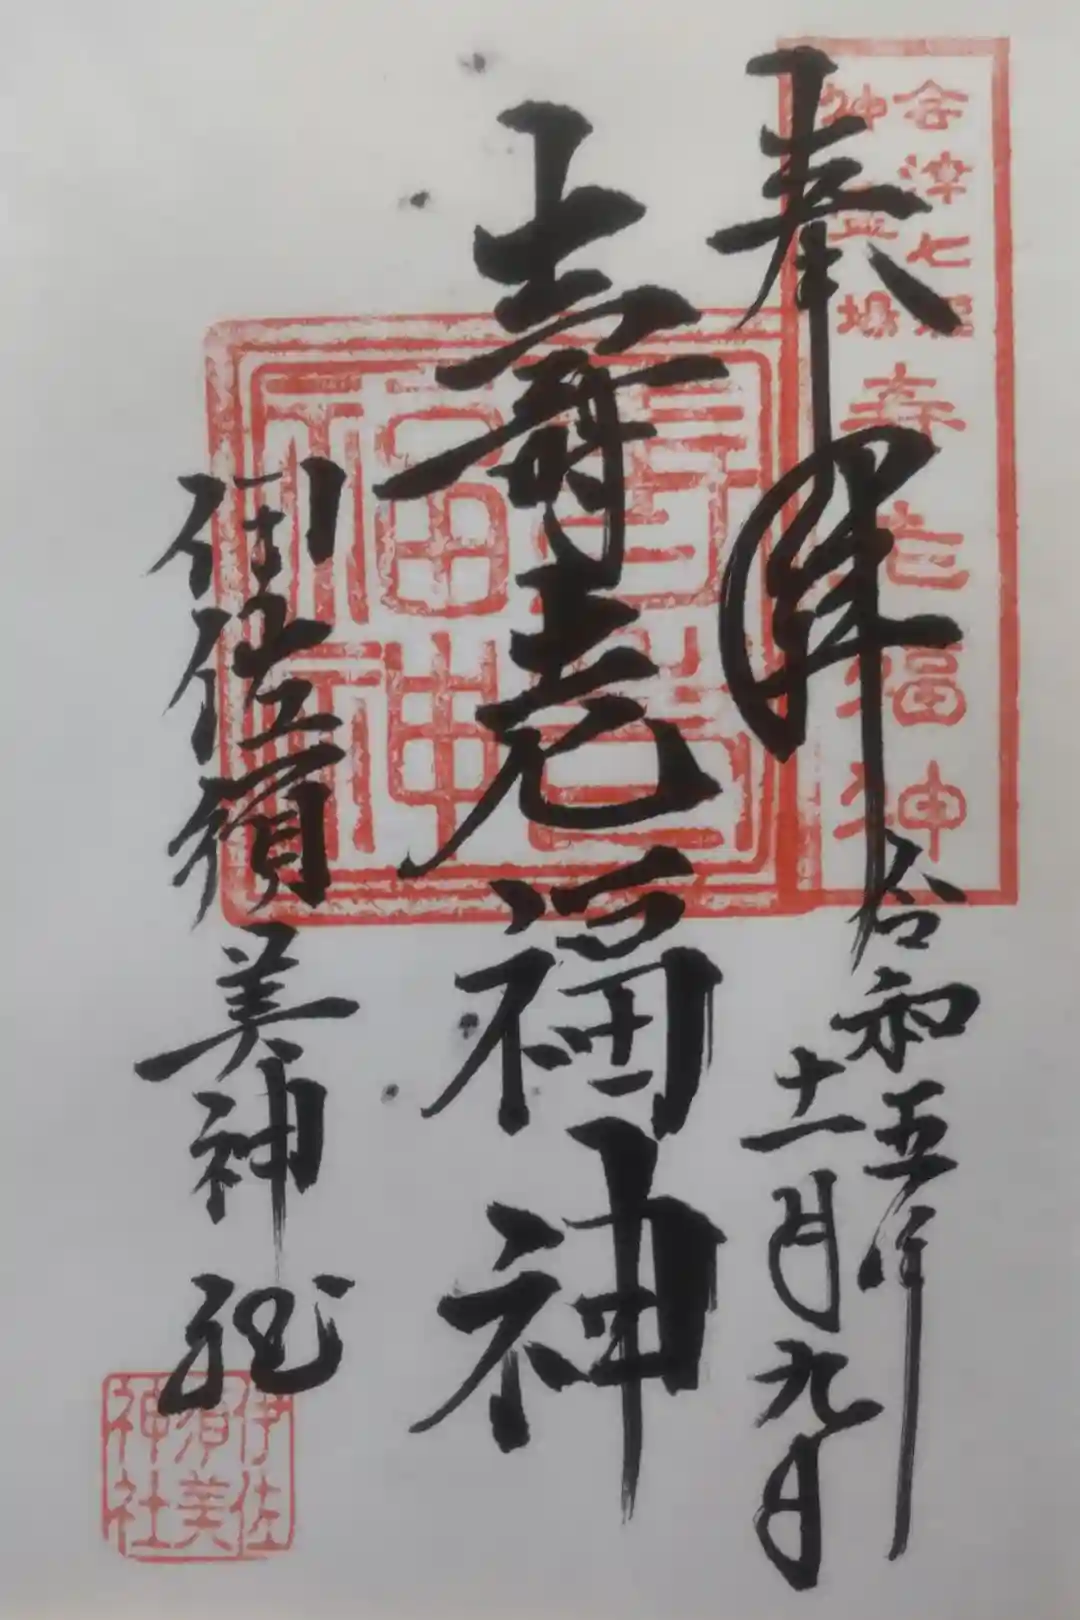 奉拝
令和五年
十一月九日
壽老福神
伊佐須美神社
会津七福
神霊場
寿老福神
壽老
福神
伊佐
須美
神社